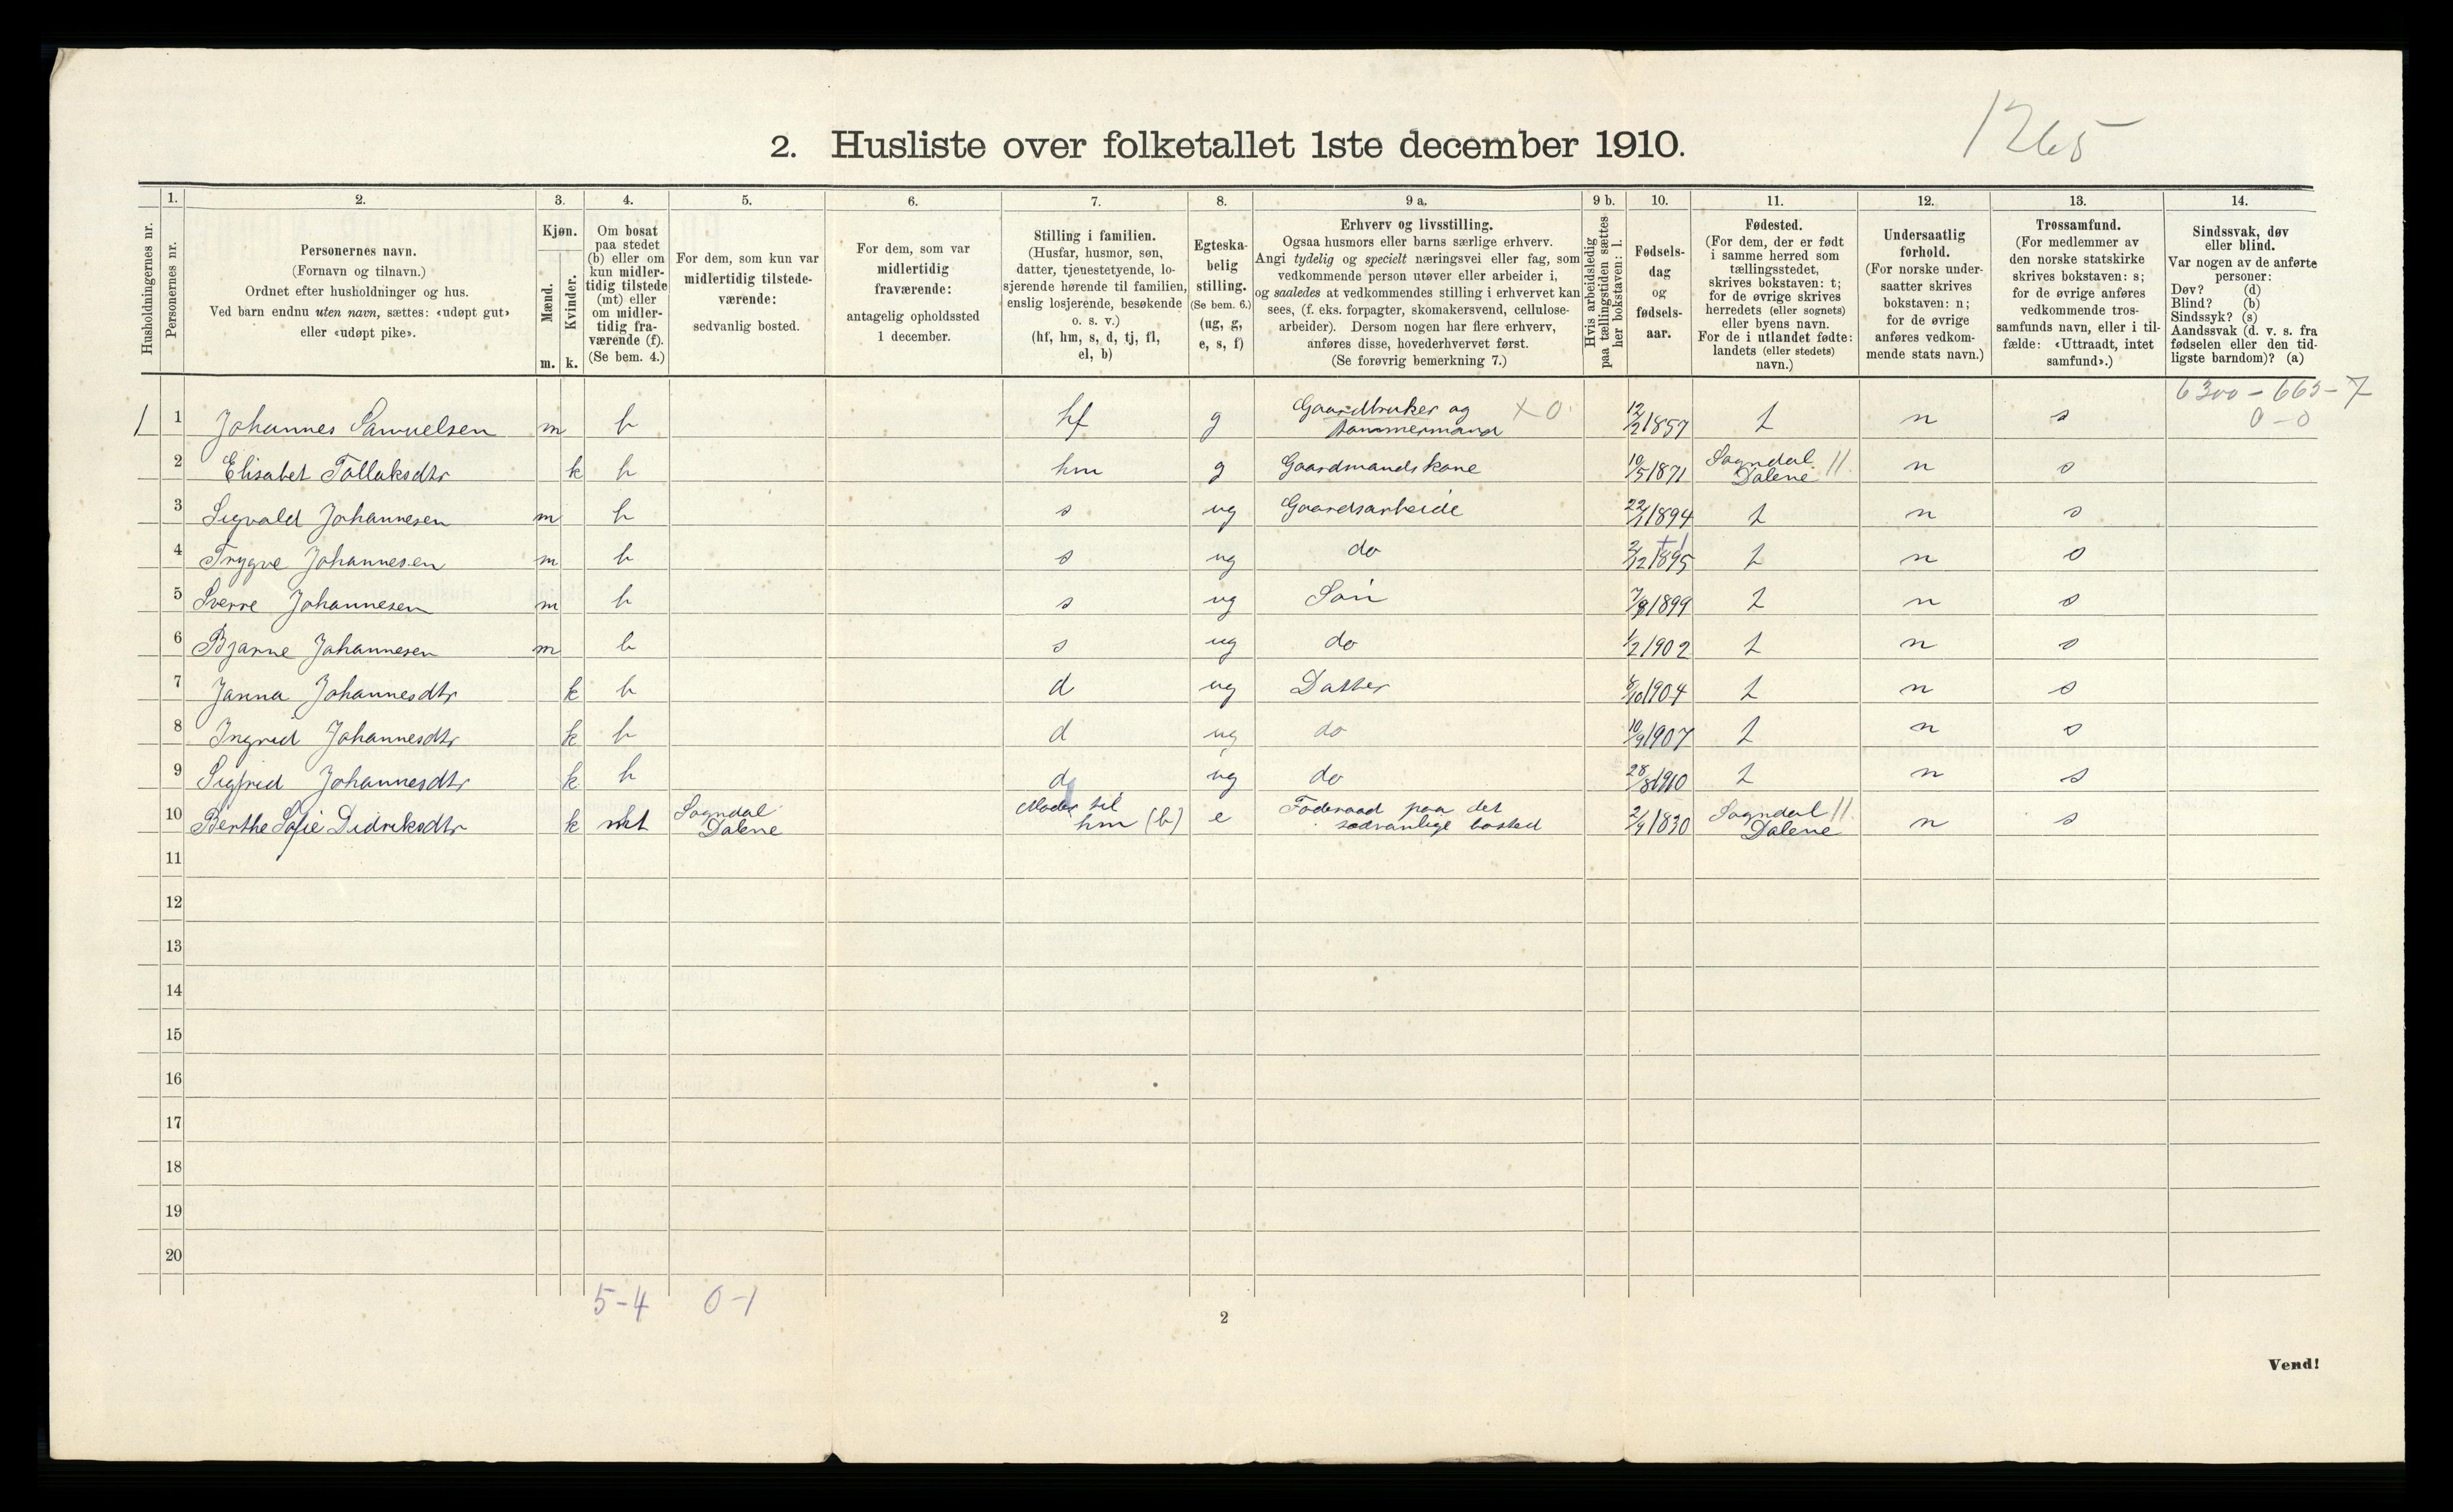 1265
2. Husliste over folketallet 1ste december 1910.
Husholdningernes nr.
1.
Personernes nr.
2.
Personernes navn.
(Fornavn og tilnavn.)
Ordnet efter husholdninger og hus.
Ved barn endnu uten navn, sættes: «udøpt gut»
eller «udøpt pike».
3.
Kjøn.
Mænd.
m.
Kvinder.
k.
4.
Om bosat
paa stedet
(b) eller om
kun midler-
tidig tilstede
(mt) eller
om midler-
tidig fra-
værende (f).
(Se bem. 4.)
5.
For dem, som kun var
midlertidig tilstede-
værende:
sedvanlig bosted.
6.
For dem, som var
midlertidig
fraværende:
antagelig opholdssted
1 december.
7.
Stilling i familien.
(Husfar, husmor, søn,
datter, tjenestetyende, lo-
sjerende hørende til familien,
enslig losjerende, besøkende
o. s. v.)
(hf, hm, s, d, tj, fl,
el, b)
8.
Egteska-
belig
stilling.
(Se bem. 6.)
(ug, g,
e, s, f)
9 a.
Erhverv og livsstilling.
Ogsaa husmors eller barns særlige erhverv.
Angi tydelig og specielt næringsvei eller fag, som
vedkommende person utøver eller arbeider i,
og saaledes at vedkommendes stilling i erhvervet kan
sees, (f. eks. forpagter, skomakersvend, cellulose-
arbeider). Dersom nogen har flere erhverv,
anføres disse, hovederhvervet først.
(Se forøvrig bemerkning 7.)
9 b.
Hvis arbeidsledig
paa tællingstiden sættes
her bokstaven: l.
10.
Fødsels-
dag
og
fødsels-
aar.
11.
Fødested.
(For dem, der er født
i samme herred som
tællingsstedet,
skrives bokstaven: t;
for de øvrige skrives
herredets (eller sognets)
eller byens navn.
For de i utlandet fødte:
landets (eller stedets)
navn.)
12.
Undersaatlig
forhold.
(For norske under-
saatter skrives
bokstaven: n;
for de øvrige
anføres vedkom-
mende stats navn.)
13.
Trossamfund.
(For medlemmer av
den norske statskirke
skrives bokstaven: s;
for de øvrige anføres
vedkommende tros-
samfunds navn, eller i til-
fælde: «Uttraadt, intet
samfund».)
14.
Sindssvak, døv
eller blind.
Var nogen av de anførte
personer:
Døv? (d)
Blind? (b)
Sindssyk? (s)
Aandssvak (d. v. s. fra
fødselen eller den tid-
ligste barndom)? (a)
6300-663-7
0-0
1 1 Johannes Samuelsen m b hf g Gaardbruker og tømmermand x 0 12/2 1857 t n s
2 Elisabet Tollaksdtr k b hm g Gaardmandskone 10/5 1871 Sogndal Dalene 11. n s
3 Sigvald Johannesen m b s ug Gaardsarbeide 22/1 1894 t n s
4 Trygve Johannesen m b s ug do 2/12 1895 t n s
5 Sverre Johannesen m b s ug Søn 7/8 1899 t n s
6 Bjarne Johannesen m b s ug do 1/2 1902 t n s
7 Janna Johannesdtr k b d ug Datter 8/10 1904 t n s
8 Ingrid Johannesdtr k b d ug do 10/9 1907 t n s
9 Sigfrid Johannesdtr k b d ug do 28/8 1910 t n s
10 Berthe Sofie Didriksdtr k mt Sogndal Dalene Moder til hm (b) e Føderaad paa det sædvanlige bosted 2/9 1830 Sogndal Dalene 11. n s
11
12
13
14
15
16
17
18
19
20
5-4 0-1
2
Vend!